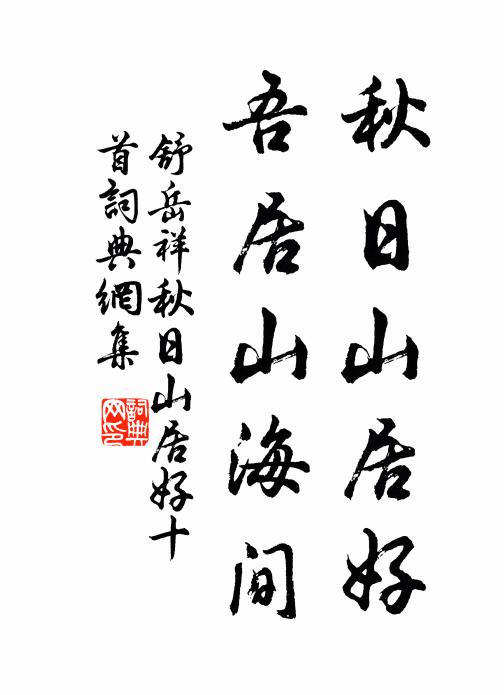 秋日山居好
吾居山海间
舒岳祥秋日山居好十
首詞典網集
詞典网印